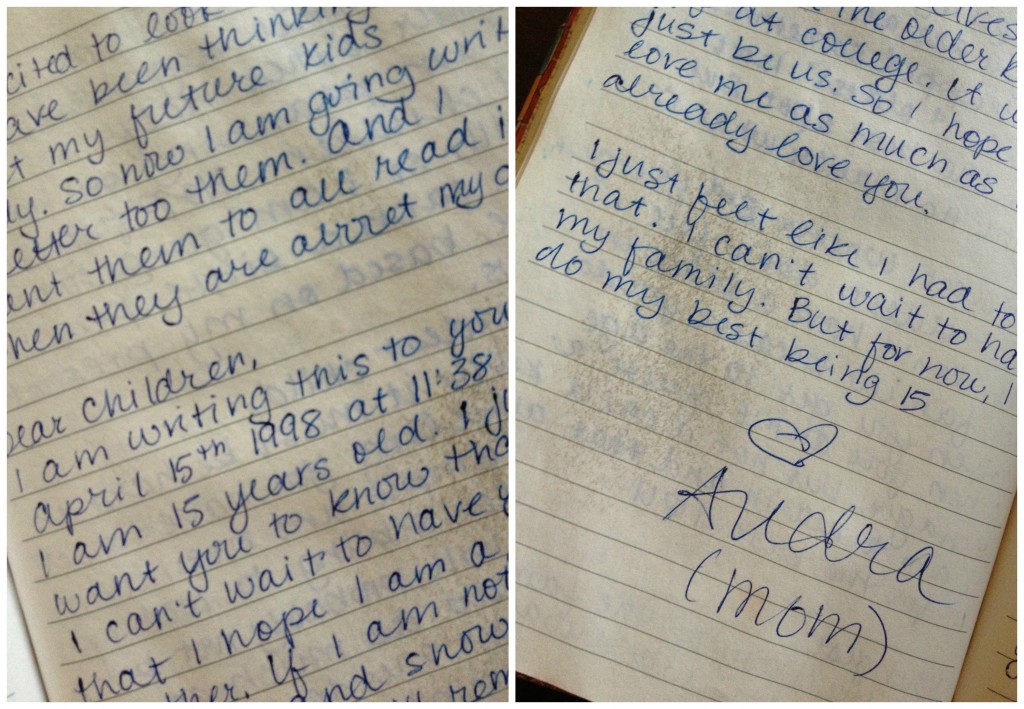 cited to look
ave been thinking
t my future kids
ly. So now I am going writ
etter too them. And I
ant them to all read i
hen they are arrret my
Dear children,
I am writing this to you
april 15th 1998 at 11:38
I am 15 years old. I ju
want you to know tha
I can't wait to have y
that I hope I am a
ther. If I am not
and show
rem
the older k
at college. It w
just be us. So I hope
love me as much as
already love you.
I just felt like I had to
that. I can't wait to ha
my family. But for now, I
do my best being 15
Audra
(mom)